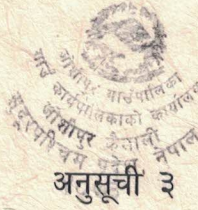 जोशीपुर गाउँपालिका
गाउँ कार्यपालिकाको कार्यालय
जोशीपुर कैलाली
सुदूरपश्चिम प्रदेश नेपाल
अनुसूची ३